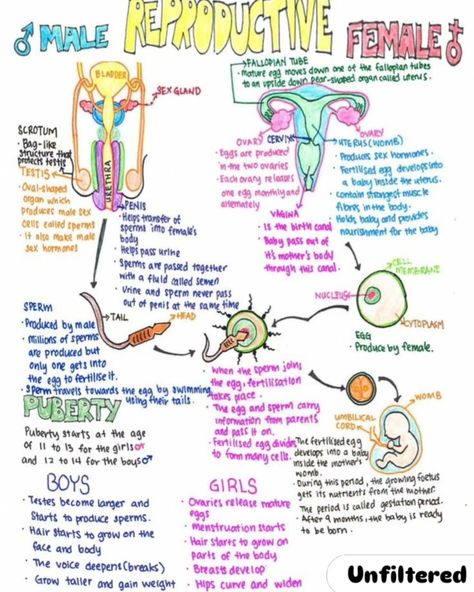 ♂ MALE REPRODUCTIVE FEMALE ♀
BLADDER
SEX GLAND
SCROTUM
• Bag-like
structure that
protects testis
TESTIS
• Oval-shaped
organ which
produces male sex
cells called sperms
• It also make male
sex hormones
URETHRA
PENIS
• Helps transfer of
sperms into female's
body
• Helps pass urine
• Sperms are passed together
with a fluid called semen
• Urine and sperm never pass
out of penis at the same time
FALLOPIAN TUBE
• Mature egg moves down one of the fallopian tubes
to an upside down pear-shaped organ called uterus.
OVARY
CERVIX
OVARY
• Eggs are produced
in the two ovaries
• Each ovary releases
one egg monthly and
alternately
UTERUS (WOMB)
• Produces sex hormones.
• Fertilised egg develops into
a baby inside the uterus.
• contain strongest muscle
fibres in the body.
• Holds baby and provides
nourishment for the baby
VAGINA
• Is the birth canal
• Baby pass out of
it's mother's body
through this canal.
CELL
MEMBRANE
NUCLEUS
CYTOPLASM
EGG
• Produce by female.
TAIL
HEAD
SPERM
• Produced by male
• Millions of sperms
are produced but
only one gets into
the egg to fertilise it.
• Sperm travels towards the egg by swimming
using their tails.
• When the sperm joins
the egg, fertilisation
takes place.
• The egg and sperm carry
information from parents
and pass it on.
• Fertilised egg divides
to form many cells.
WOMB
UMBILICAL
CORD
The fertilised egg
develops into a baby
inside the mother's
womb.
• During this period, the growing foetus
gets its nutrients from the mother.
The period is called gestation period.
• After 9 months, the baby is ready
to be born.
PUBERTY
Puberty starts at the age
of 11 to 13 for the girls♀
and 12 to 14 for the boys♂
BOYS
• Testes become larger and
starts to produce sperms.
• Hair starts to grow on the
face and body
• The voice deepens (breaks)
• Grow taller and gain weight
GIRLS
• Ovaries release mature
eggs
• menstruation starts
• Hair starts to grow on
parts of the body
• Breasts develop
• Hips curve and widen
Unfiltered